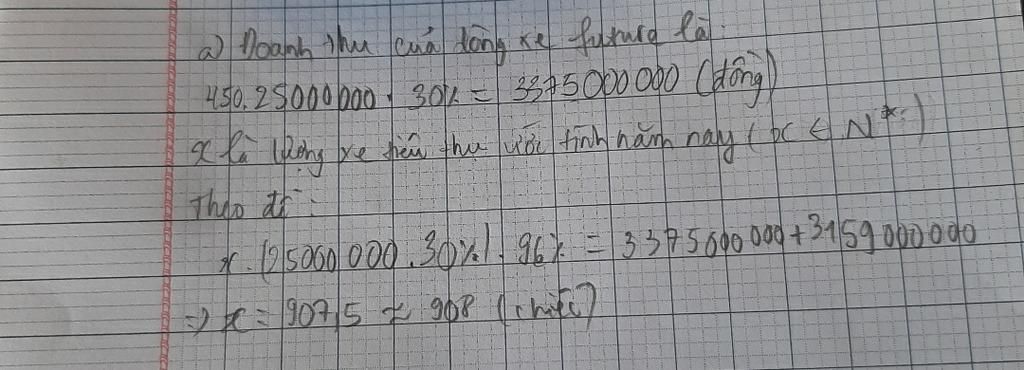 a) Doanh thu của dòng xe future là:
450.25000000.30% = 3375000000 (đồng)
x là lượng xe tiêu thụ ước tính năm nay (x ∈ N*)
Theo đề:
x.(25000000.30%).96% = 3375000000+3159000000
=> x = 907,5 ≈ 908 (chiếc)